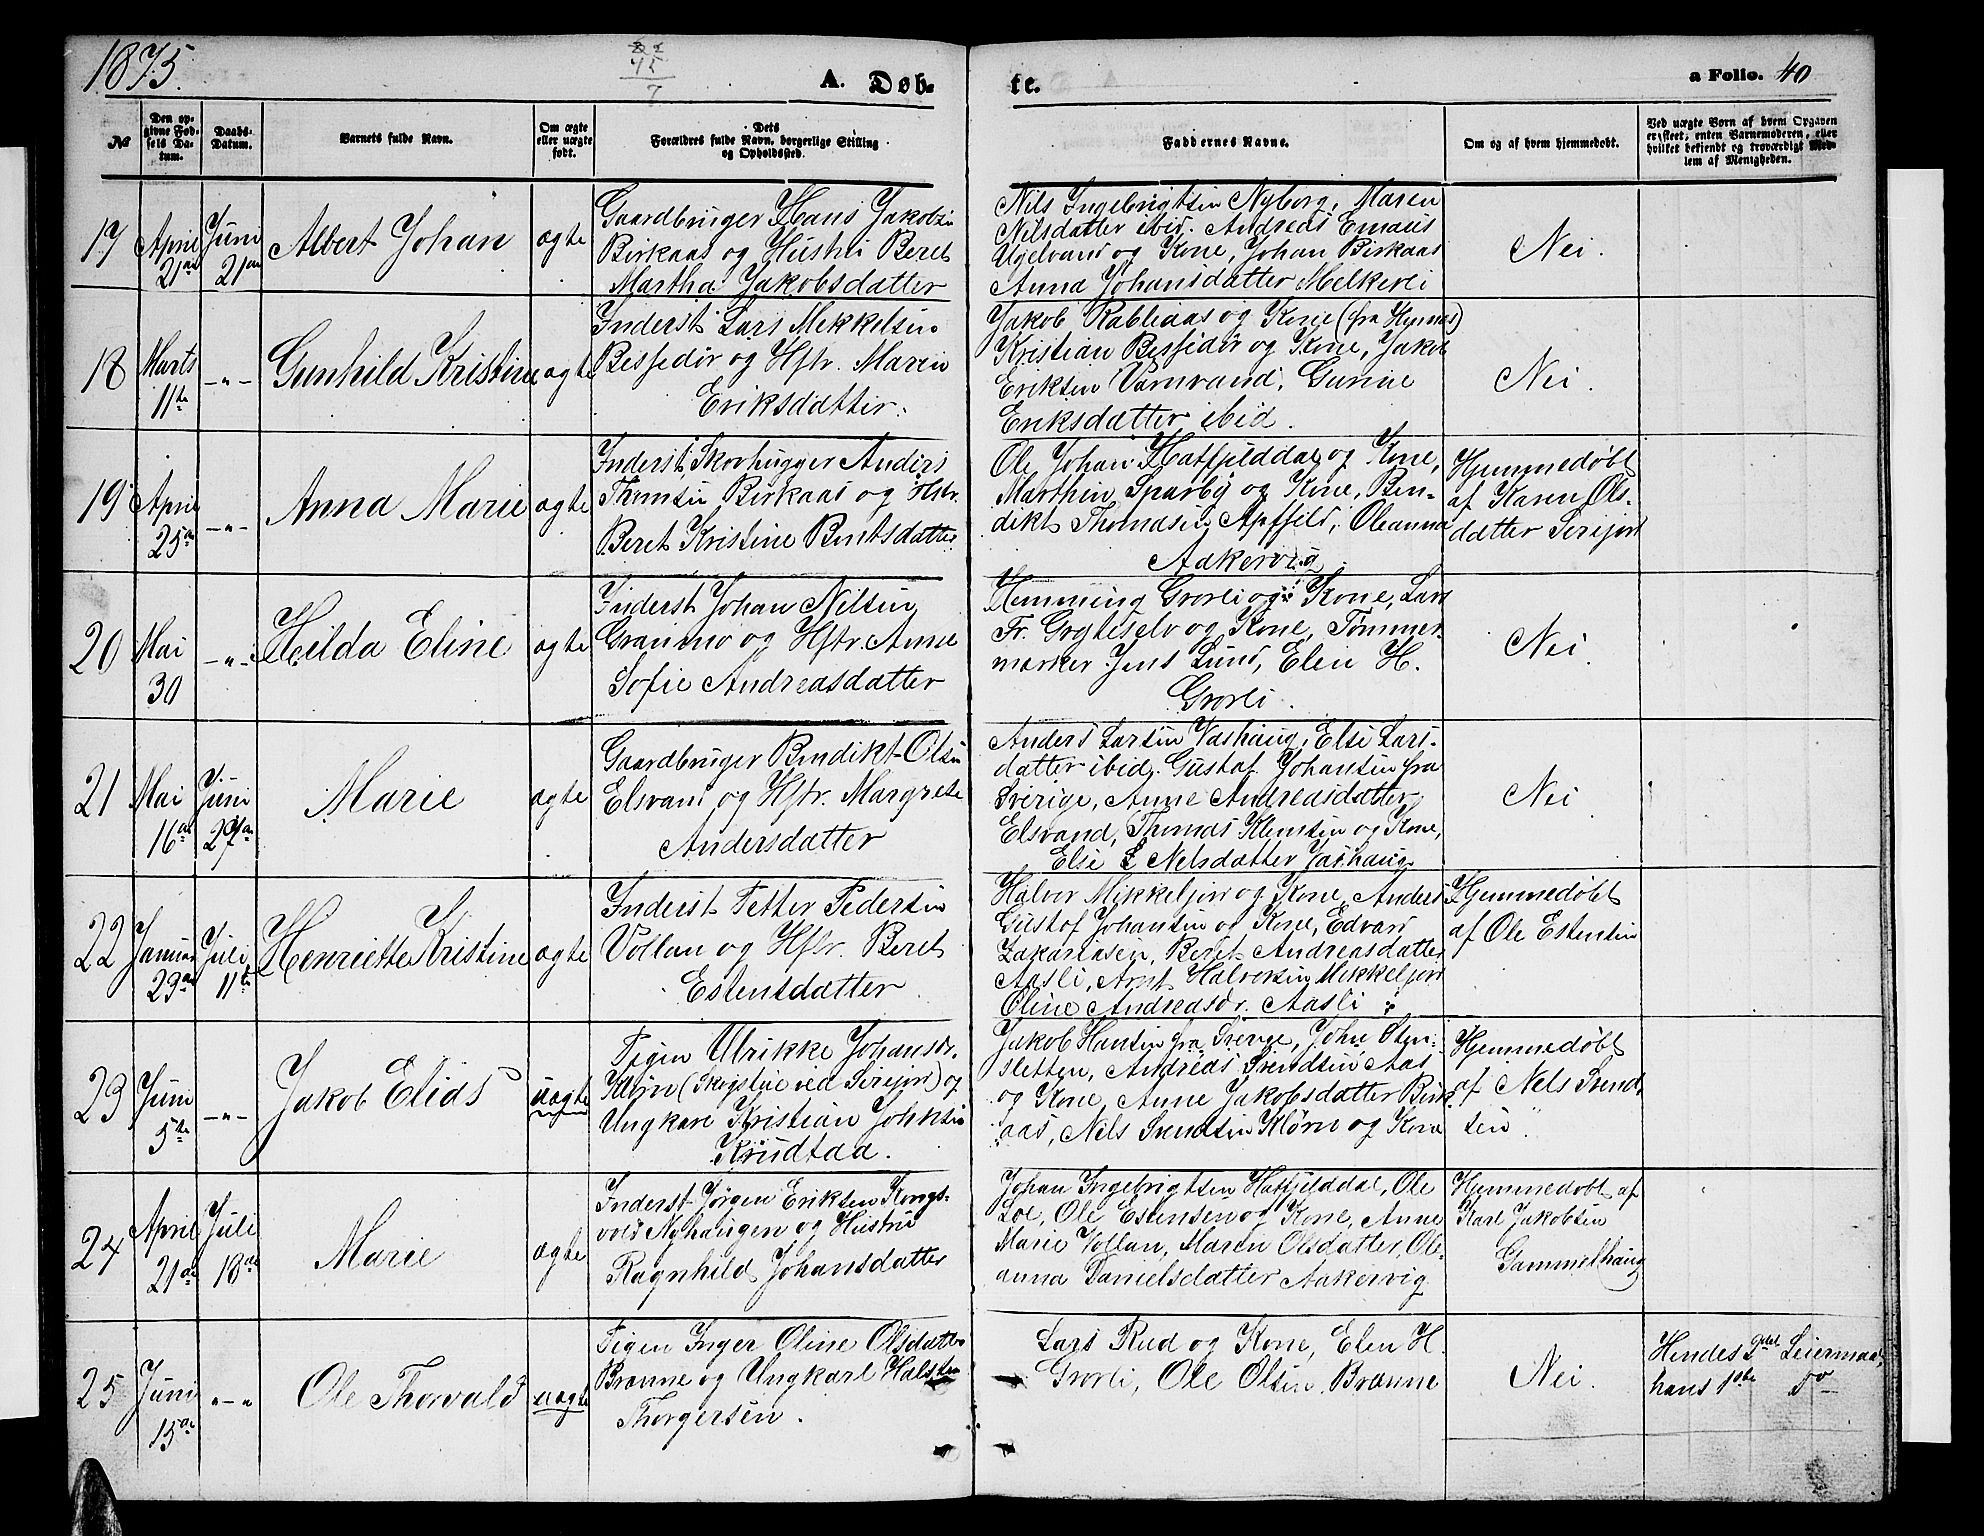 1875.
A. Døb-
te.
a Folio. 40
No
Den op-
givne Fød-
sels Da-
tum.
Daabs-
Datum.
Barnets fulde Navn.
Om ægte
eller uægte
født.
Dets
Forældres fulde Navn, borgerlige Stilling
og Opholdssted.
Faddernes Navne.
Om og af hvem hjemmedøbt.
Ved uægte Børn af hvem Opgaven
er skeet, enten Barnemoderen, eller
hvilket bekjendt og troværdigt Med-
lem af Menigheden.
17
April
21de
Juni
21de
Albert Johan
ægte
Gaardbruger Hans Jakobsen
Birkaas og Hustru Beret
Martha Jakobsdatter
Nils Ingebrigtsen Nyborg, Maren
Nilsdatter ibid. Andreas Emaus
Ugelvand og Kone, Johan Birkaas
Anna Johansdatter Melkevei
Nei.
18
Marts
11te
-"-
Gunhild Kristine
ægte
Inderst Lars Mikkelsen
Bessedør og Hstr. Maren
Eriksdatter.
Jakob Rabliaas og Kone (fra Hemnes)
Kristian Bessedør og Kone, Jakob
Eriksen Varnvand, Gurine
Eriksdatter ibid.
Nei.
19
April
25de
-"-
Anna Marie
ægte
Inderst, Skovhugger Anders
Thomsen Birkaas og Hstr.
Beret Kristine Bentsdatter
Ole Johan Hatfjelddal og Kone,
Marthin Sparby og Kone, Ben-
dikt Thomasen Apfjeld, Oleanna
Aakervig
Hjemmedøbt
af Karen Ols-
datter Serijord
20
Mai
30
-"-
Hilda Eline
ægte
Inderst Johan Nilsen
Granmo og Hstr. Anne
Sofie Andreasdatter
Hemming Grovli og Kone, Lars
Fr. Gryteselv og Kone, Tømmer-
mærker Jens Lund, Elen H.
Grovli.
Nei
21
Mai
16de
Juni
27de
Marie
ægte
Gaardbruger Bendikt Olsen
Elsvand og Hstr. Margrete
Andersdatter
Anders Larsen Vashaug, Else Lars-
datter ibid. Gustaf Johansen fra
Sverige, Anne Andreasdatter
Elsvand, Thomas Klemsen og Kone,
Else Nelsdatter Vashaug
Nei
22
Januar
29de
Juli
11te
Henriette Kristine
ægte
Inderst Petter Pedersen
Vollan og Hstr. Beret
Estensdatter
Halvor Mikkeljord og Kone, Anders
Gustof Johansen og Kone, Edvard
Zakariasen, Beret Andreasdatter
Aasli, Arnt Halvorsen Mikkeljord
Oline Andreasdr. Aasli
Hjemmedøbt
af Ole Estensen
23
Juni
5te
-"-
Jakob Elias
uægte
Pigen Ulrikke Johansdr.
Kløvn (Skogstue ved Serijord) og
Ungkarl Kristian Johnsen
Krudtaa.
Jakob Hansen fra Sverge, John Sten-
sletten, Andreas Svendsen Aas
og Kone, Anne Jakobsdatter Birk-
aas, Nils Svendsen Kløvn og Kone
Hjemmedøbt
af Nels Svend-
sen
24
April
21de
Juli
18de
Marie
ægte
Inderst Jørgen Eriksen Kongs-
vold Nyhaugen og Hustru
Ragnhild Johansdatter
Johan Ingebrigtsen Hatfjelddal, Ole
Loe, Ole Estensen og Kone, Anne
Marie Vollan, Maren Olsdatter, Ole-
anna Danielsdatter Aakervig
Hjemmedøbt af
Karl Jakobsen
Gammelhaug
25
Juni
15de
-"-
Ole Thorvald
uægte
Pigen Inger Oline Olsdatter
Brænne og Ungkarl Halsten
Thorgersen.
Lars Rud og Kone, Elen H.
Grovli, Ole Olsen Brænne
Nei.
Hendes 2det Leiermaal,
hans 1ste do